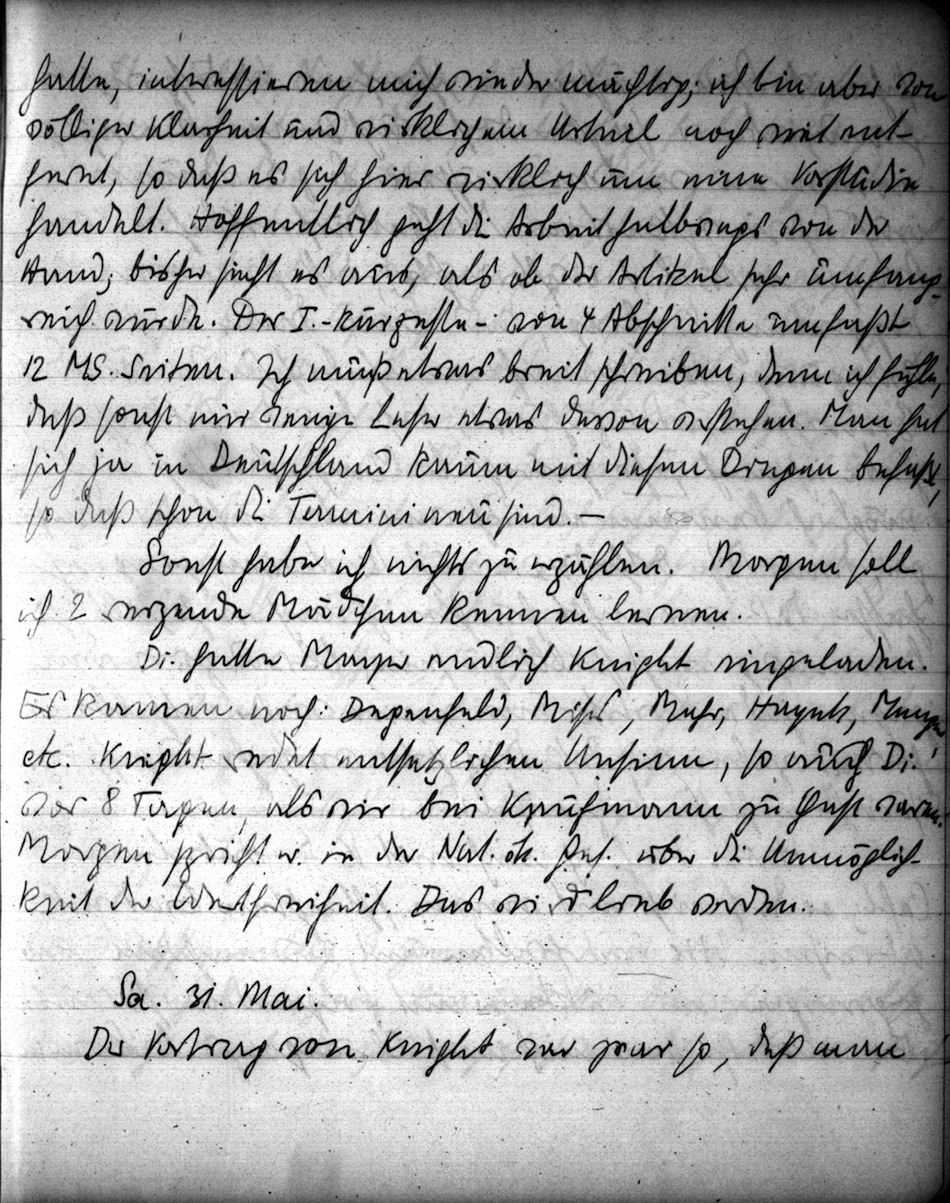 hatte, interessieren mich wieder mächtig; ich bin aber von
völliger Klarheit und wirklichem Urteil noch weit ent-
fernt, so daß es sich hier wirklich um eine Vorstudie
handelt. Hoffentlich geht die Arbeit halbwegs von der
Hand; bisher sieht es aus, als ob der Artikel sehr umfang-
reich würde. Der I. - kürzeste - von 4 Abschnitte umfaßt
12 MS. Seiten. Ich muß etwas breit schreiben, denn ich fühle,
daß sonst nur wenige Leser etwas davon verstehen. Man hat
sich ja in Deutschland kaum mit diesen Dingen befaßt,
so daß schon die Termini neu sind. —
Sonst habe ich nichts zu erzählen. Morgen soll
ich 2 reizende Mädchen kennen lernen.
Di. hatte Mayer endlich Knight eingeladen.
Es kamen noch: Degenfeld, Mises, Mahr, Hayek, Menger
etc. Knight redet entsetzlichen Unsinn, so auch Di.
vor 8 Tagen, als wir bei Kaufmann zu Gast waren.
Morgen spricht er in der Nat. ök. Ges. über die Unmöglich-
keit der Wertfreiheit. Das wird lieb werden.
Sa. 31. Mai.
Der Vortrag von Knight war zwar so, daß man